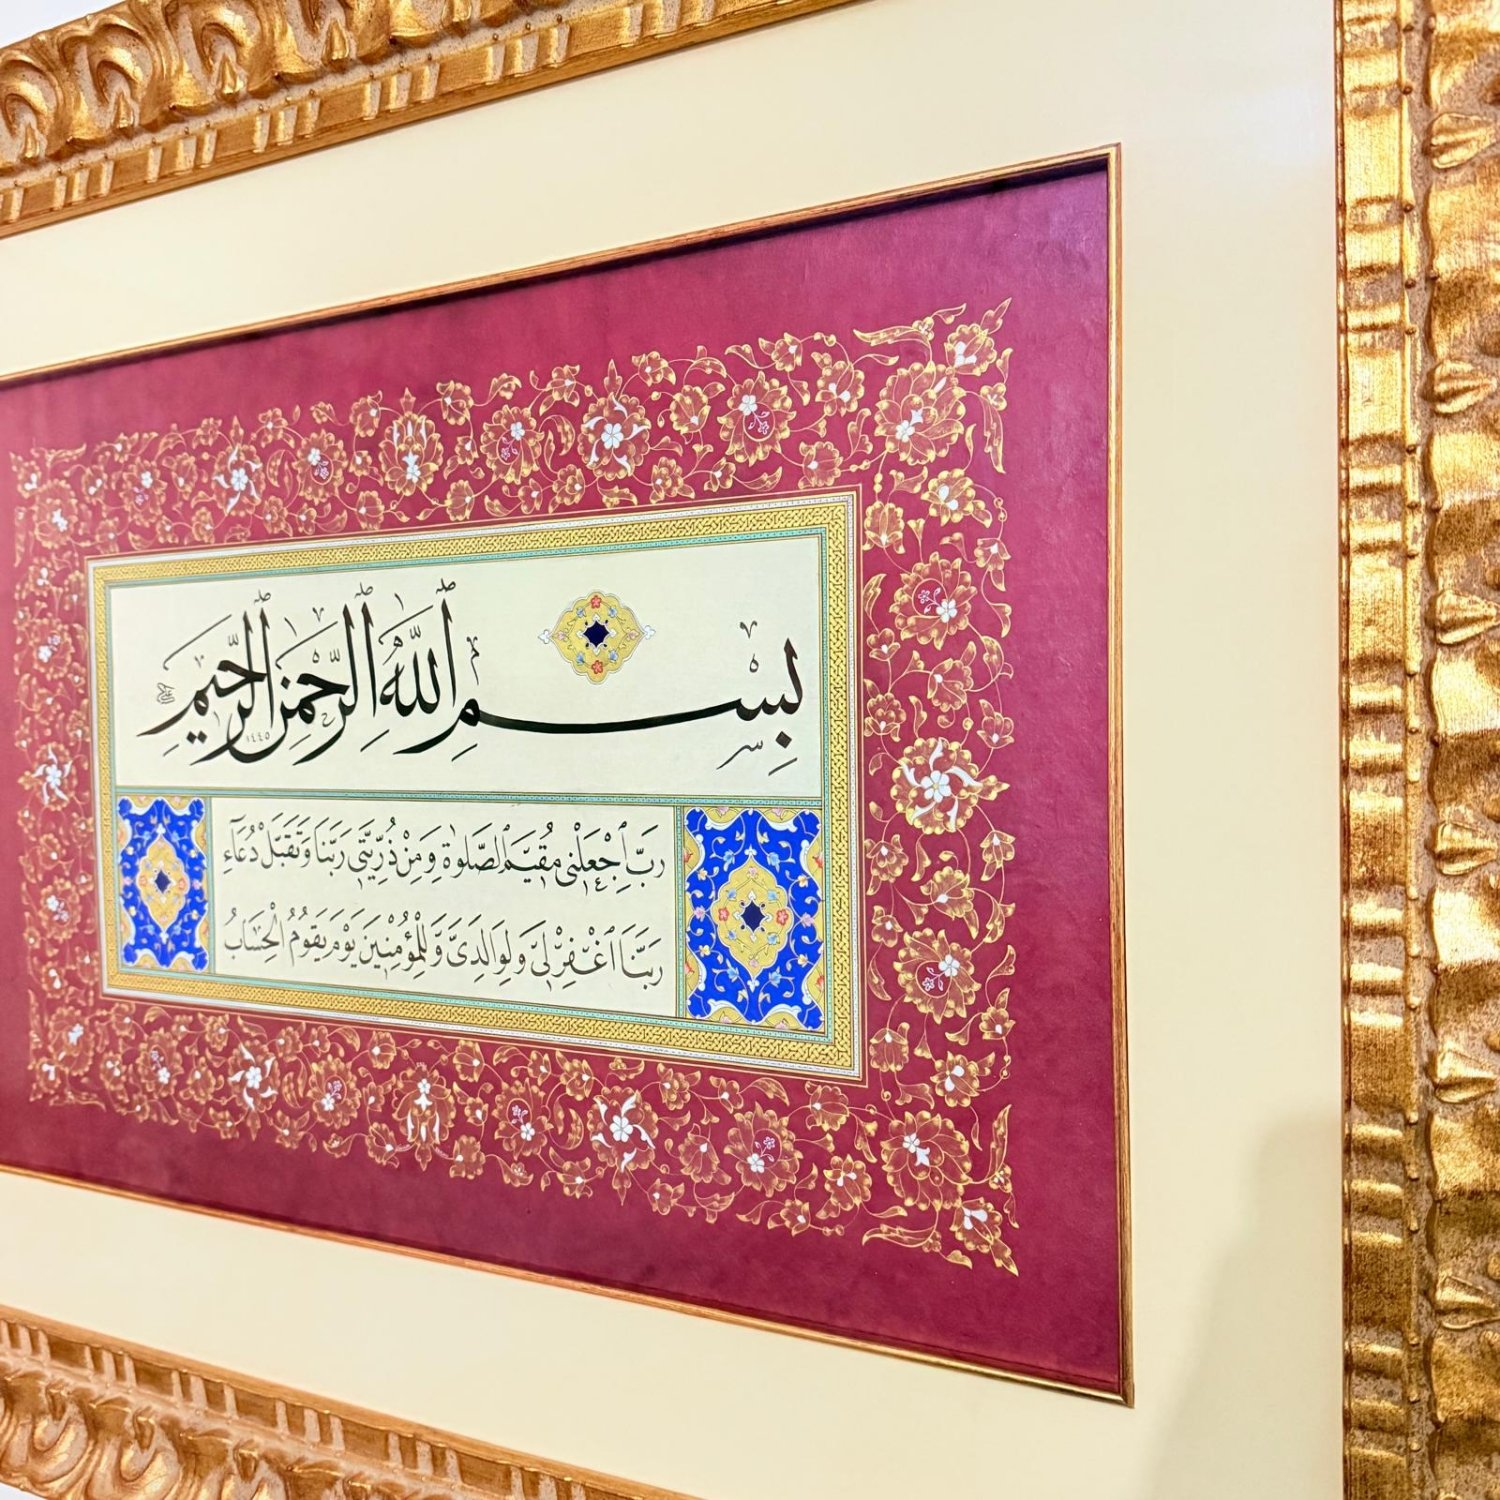 بِسْمِ اللَّهِ الرَّحْمَنِ الرَّحِيمِ
١٤٤٥
رَبِّ اجْعَلْنِي مُقِيمَ الصَّلٰوةِ وَمِنْ ذُرِّيَّتِي رَبَّنَا وَتَقَبَّلْ دُعَآءِ
رَبَّنَا اغْفِرْ لِي وَلِوَالِدَيَّ وَلِلْمُؤْمِنِينَ يَوْمَ يَقُومُ الْحِسَابُ